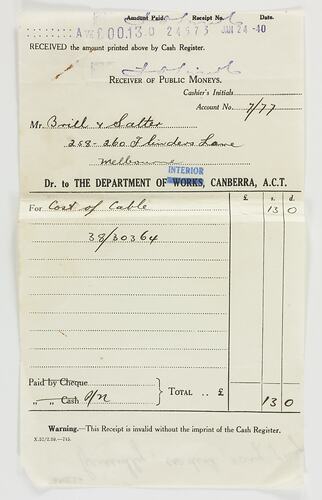 Amount Paid. Receipt No. Date.
A £00.13.0 24573 JAN 24 -40
RECEIVED the amount printed above by Cash Register.
RECEIVER OF PUBLIC MONEYS.
Cashier's Initials
Account No. 7/77
Mr Brill & Salter
258-260 Flinders Lane
Melbourne
INTERIOR
Dr. to THE DEPARTMENT OF WORKS, CANBERRA, A.C.T.
£ s. d.
For Cost of Cable 13 0
38/30364
Paid by Cheque
" " Cash P/N TOTAL .. £ 13 0
Warning.—This Receipt is invalid without the imprint of the Cash Register.